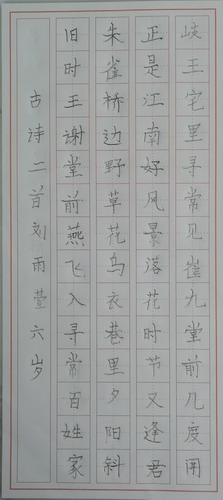 岐王宅里寻常见崔九堂前几度闻
正是江南好风景落花时节又逢君
朱雀桥边野草花乌衣巷里夕阳斜
旧时王谢堂前燕飞入寻常百姓家
古诗二首刘雨萱六岁